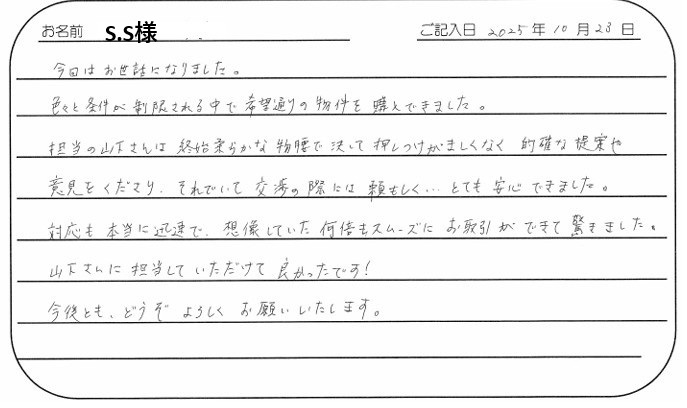 お名前 S.S様 ご記入日 2025年10月23日
今回はお世話になりました。
色々と条件が制限される中で希望通りの物件を購入できました。
担当の山下さんは終始柔らかな物腰で決して押しつけがましくなく的確な提案や
意見をくださり、それでいて交渉の際には頼もしく…とても安心できました。
対応も本当に迅速で、想像していた何倍もスムーズにお取引ができて驚きました。
山下さんに担当していただけて良かったです!
今後とも、どうぞよろしくお願いいたします。